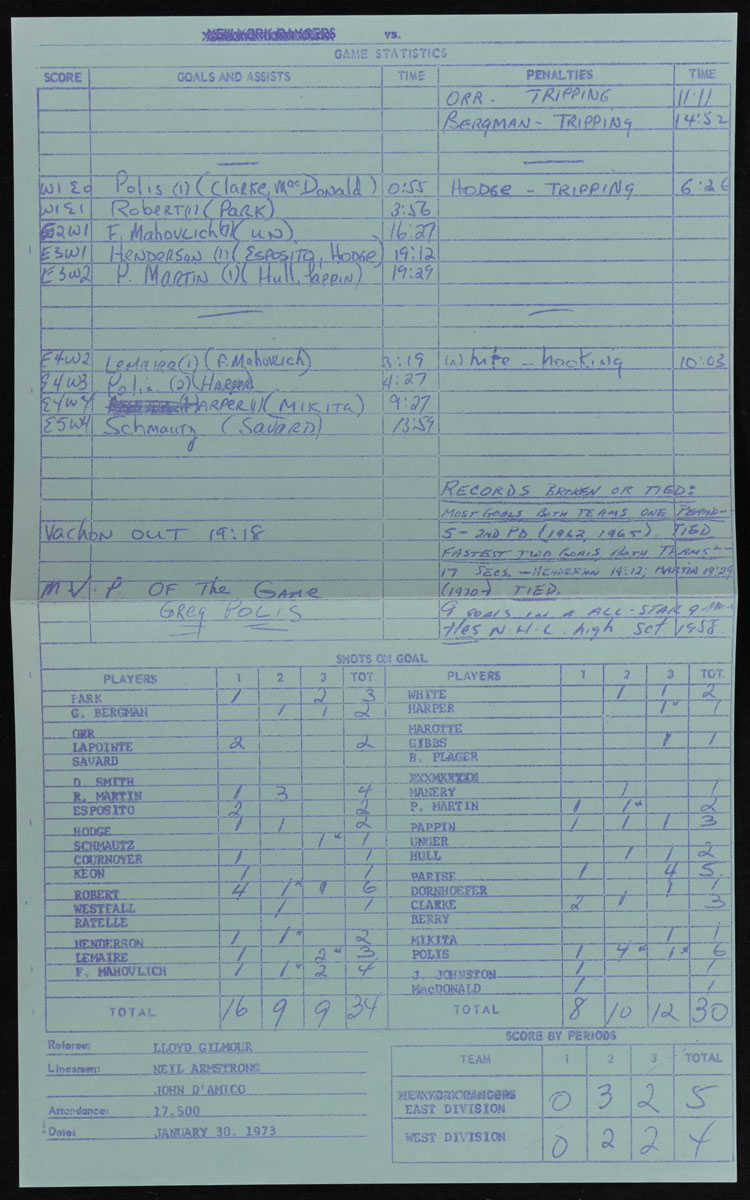 NEW YORK RANGERS vs.
GAME STATISTICS
SCORE GOALS AND ASSISTS TIME PENALTIES TIME
ORR - TRIPPING 11:11
BERGMAN - TRIPPING 14:52
W1 E0 Polis (1) (Clarke, MacDonald) 0:55 HODGE - TRIPPING 6:26
W1E1 Robert(1) (PARK) 3:56
E2W1 F. MAHOVLICH(1) (UN) 16:27
E3W1 HENDERSON (1) (ESPOSITO, HODGE) 19:12
E3W2 P. MARTIN (1) (Hull, PAPPIN) 19:29
E4W2 Lemaire(1) (F. Mahovlich) 3:19 White - hooking 10:03
E4W3 Polis (2) (HARPER) 4:27
E4W4 HARPER(1) (MIKITA) 9:27
E5W4 Schmautz (SAVARD) 13:59
RECORDS BROKEN OR TIED:
MOST GOALS BOTH TEAMS ONE PERIOD -
Vachon OUT 19:18 5 - 2ND PD (1962, 1965). TIED
FASTEST TWO GOALS BOTH TEAMS -
17 SECS. - HENDERSON 19:12; MARTIN 19:29
M.V.P. OF The GAME (1970) TIED.
Greg POLIS 9 GOALS IN A ALL-STAR game
ties N.H.L. high set 1958.
SHOTS ON GOAL
PLAYERS 1 2 3 TOT. PLAYERS 1 2 3 TOT.
PARK 1 2 3 WHITE 1 1 2
G. BERGMAN 1 1 2 HARPER 1* 1
ORR MAROTTE
LAPOINTE 2 2 GIBBS 1 1
SAVARD B. PLAGER
D. SMITH
R. MARTIN 1 3 4 MANERY 1 1
ESPOSITO 2 2 P. MARTIN 1 1* 2
HODGE 1 1 2 PAPPIN 1 1 1 3
SCHMAUTZ 1* 1 UNGER
COURNOYER 1 1 HULL 1 1 2
KEON 1 1 PARISE 1 4 5
ROBERT 4 1* 1 6 DORNHOEFER 1 1
WESTFALL 1 1 CLARKE 2 1 3
RATELLE BERRY
HENDERSON 1 1* 2 MIKITA 1 1
LEMAIRE 1 2* 3 POLIS 1 4* 1* 6
F. MAHOVLICH 1 1* 2 4 J. JOHNSTON 1 1
MacDONALD 1 1
TOTAL 16 9 9 34 TOTAL 8 10 12 30
SCORE BY PERIODS
Referee: LLOYD GILMOUR
Linesmen: NEIL ARMSTRONG TEAM 1 2 3 TOTAL
JOHN D'AMICO NEW YORK RANGERS
Attendance: 17,500 EAST DIVISION 0 3 2 5
Date: JANUARY 30, 1973 WEST DIVISION 0 2 2 4